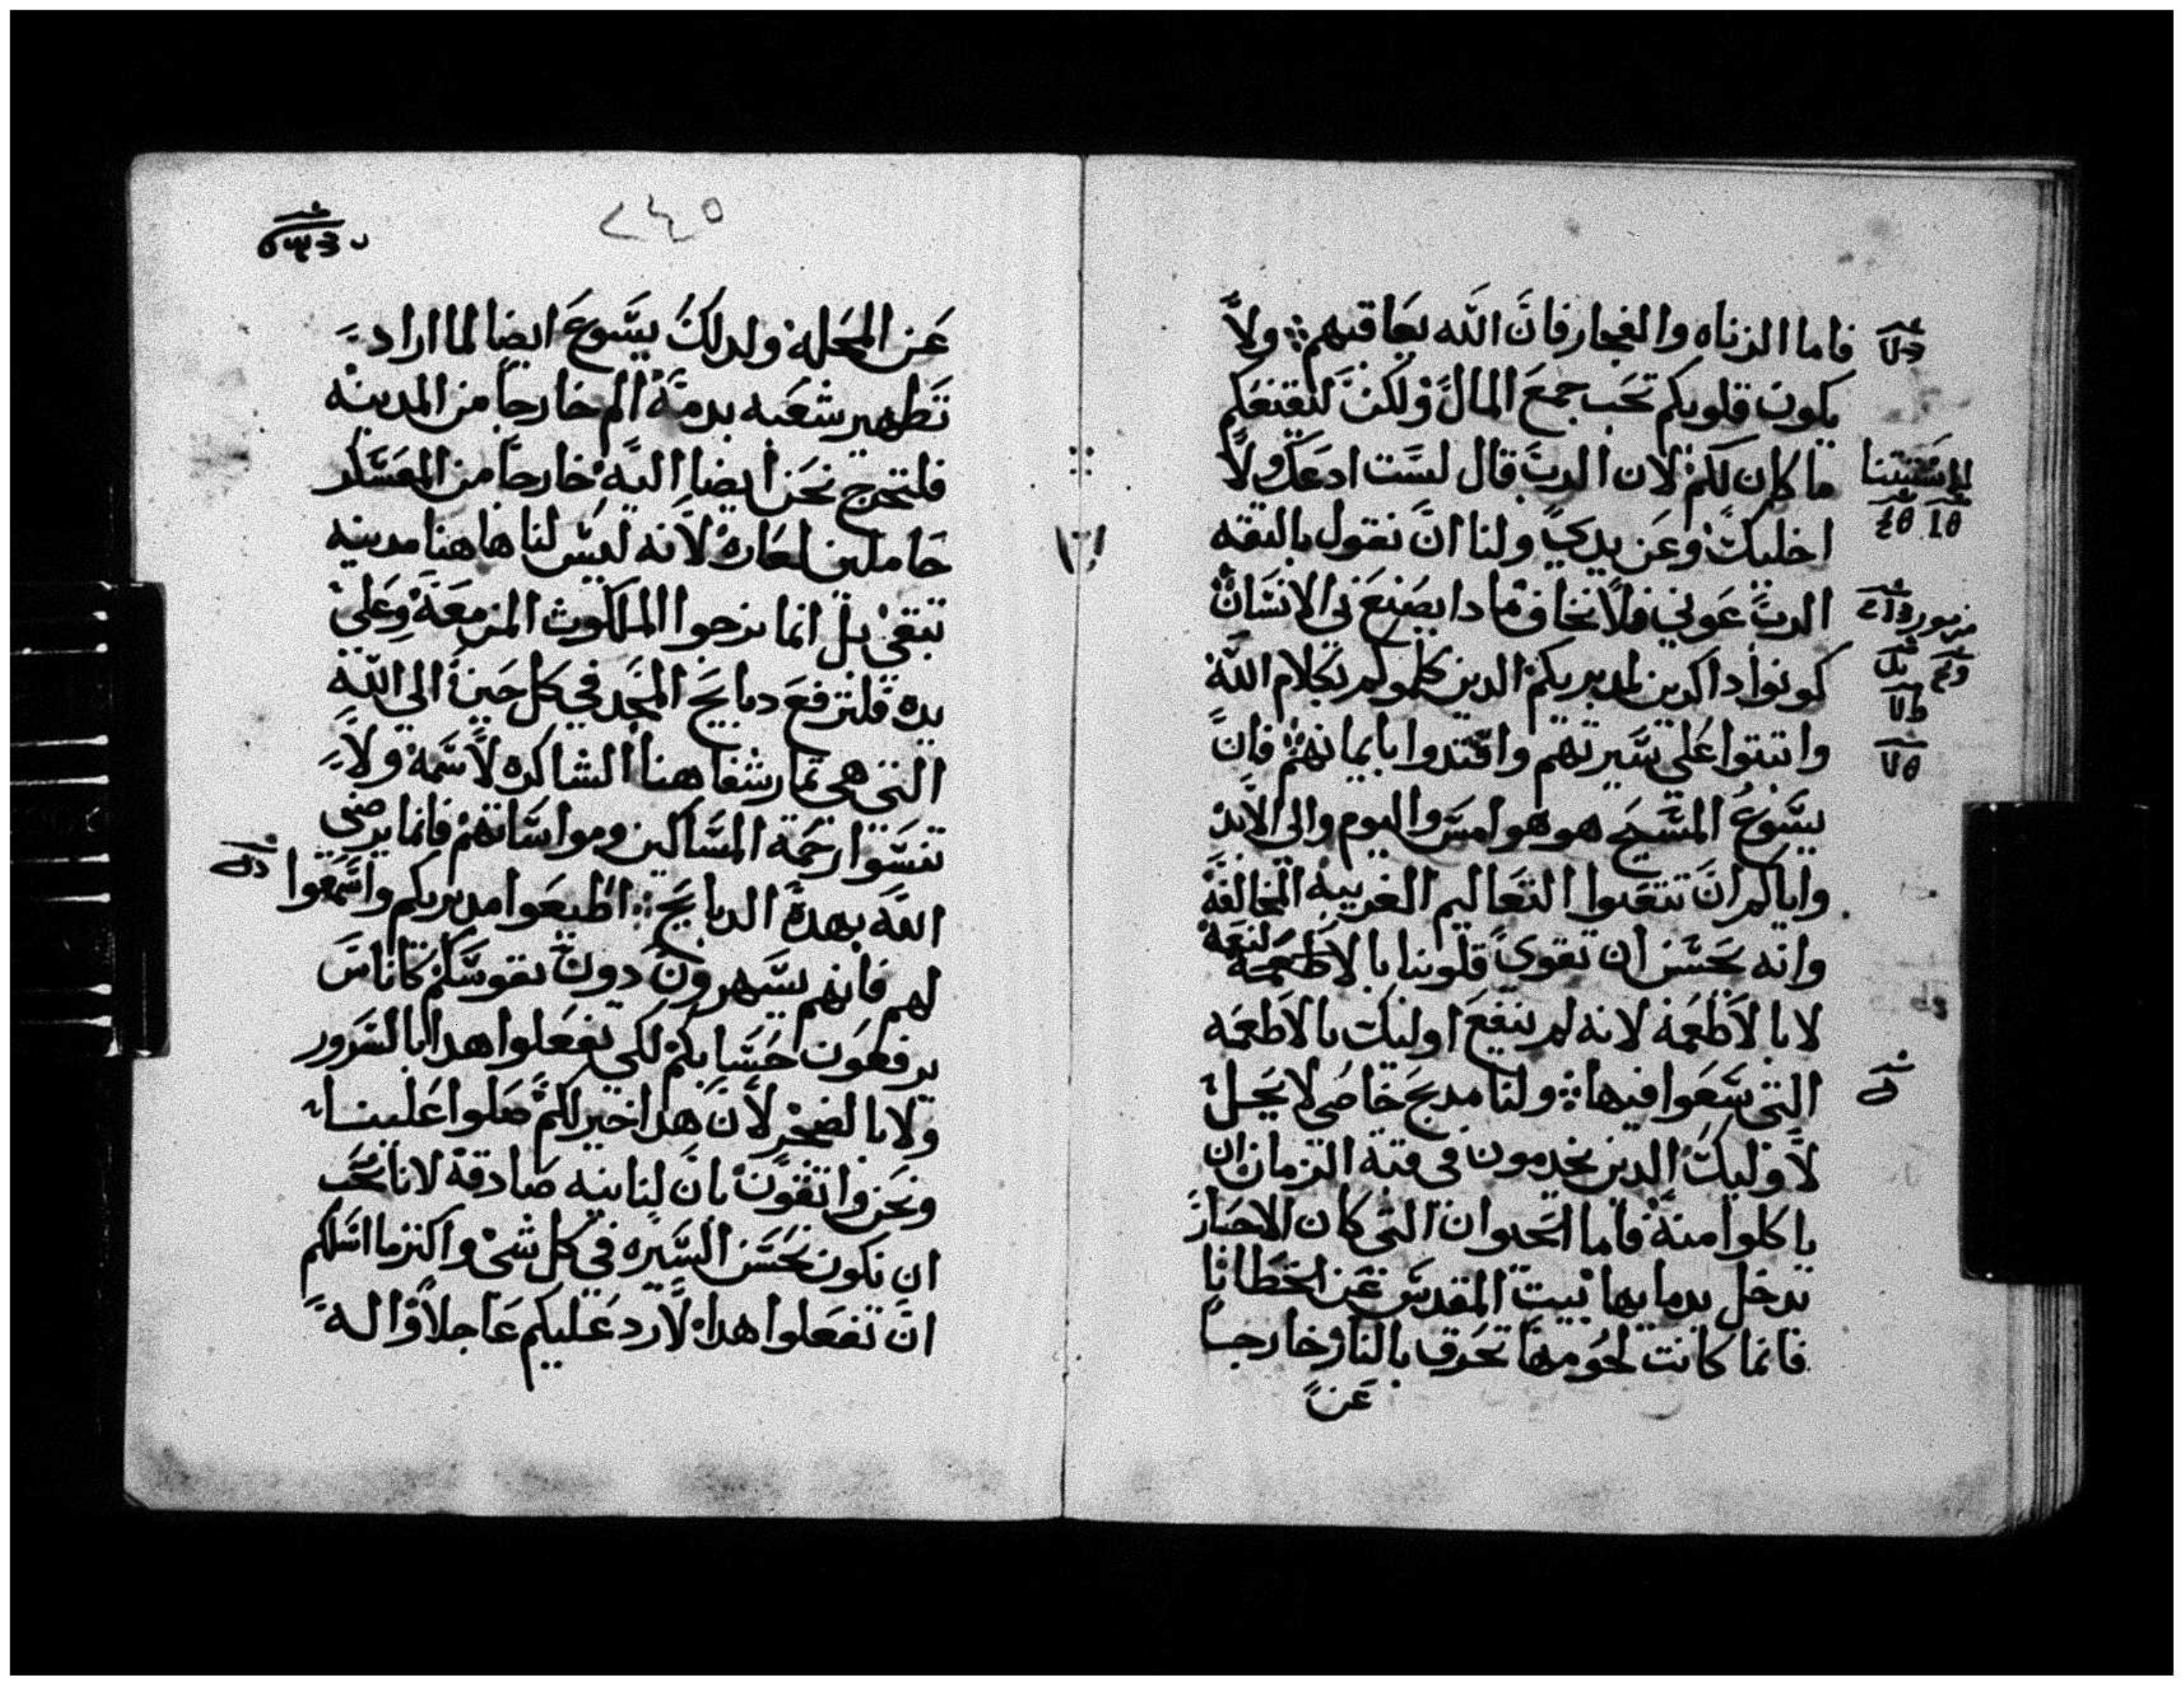 فاما الزناه والفجار فان الله يعاقبهم ولا
يكون قلوبكم تحب جمع المال ولكن ليقنعكم
ما كان لكم لان الرب قال لست ادعك ولا
اخليك وعن يدي ولنا ان نقول بالثقه
الرب عوني فلا نخاف مادا يصنع بي الانسان
كونوا داكرين لمدبريكم الدين كلموكم بكلام الله
واتبتوا على سيرتهم واقتدوا بايمانهم فان
يسوع المسيح هو هو امس واليوم والى الابد
واياكم ان تتبعوا التعاليم الغريبه المخالفه
وانه يحسن ان تقوي قلوبنا بالنعمة
لا بالاطعمه لانه لم ينتفع اوليك بالاطعمه
التي سعوا فيها ولنا مدبح خاص لا يحل
لاوليك الدين يخدمون في قبة الزمان ان
ياكلوا منه فاما الحيوان التي كان الاحبار
تدخل بدمايها بيت المقدس عن الخطايا
فانما كانت لحومها تحرق بالنار خارجا
عن
مزمور
٢٤٥
عن المحله ولدلك يسوع ايضا لما اراد
تطهير شعبه بدمه الم خارجا من المدينه
فلنخرج نحن ايضا اليه خارجا من المعسكر
حاملين لعاره لانه ليس لنا هاهنا مدينه
تبقي بل انما نرجوا الملكوت المزمعه وعلي
يده فلنرفع دبايح المجد في كل حين الي الله
التي هي تمار شفاهنا الشاكره لاسمه ولا
تنسوا رحمة المساكين ومواساتهم فانما يرضي
الله بهده الدبايح اطيعوا مدبريكم واسمعوا
لهم فانهم يسهرون دون نفوسكم كاناس
يرفعون حسابكم لكي يفعلوا هدا بالسرور
ولا بالضجر لان هدا خير لكم صلوا علينا
ونحن واتقون بان لنا نيه صادقه لانا نحب
ان نكون بحسن السيره في كل شي واكتر ما اسلكم
ان تفعلوا هدا لارد عليكم عاجلا واله